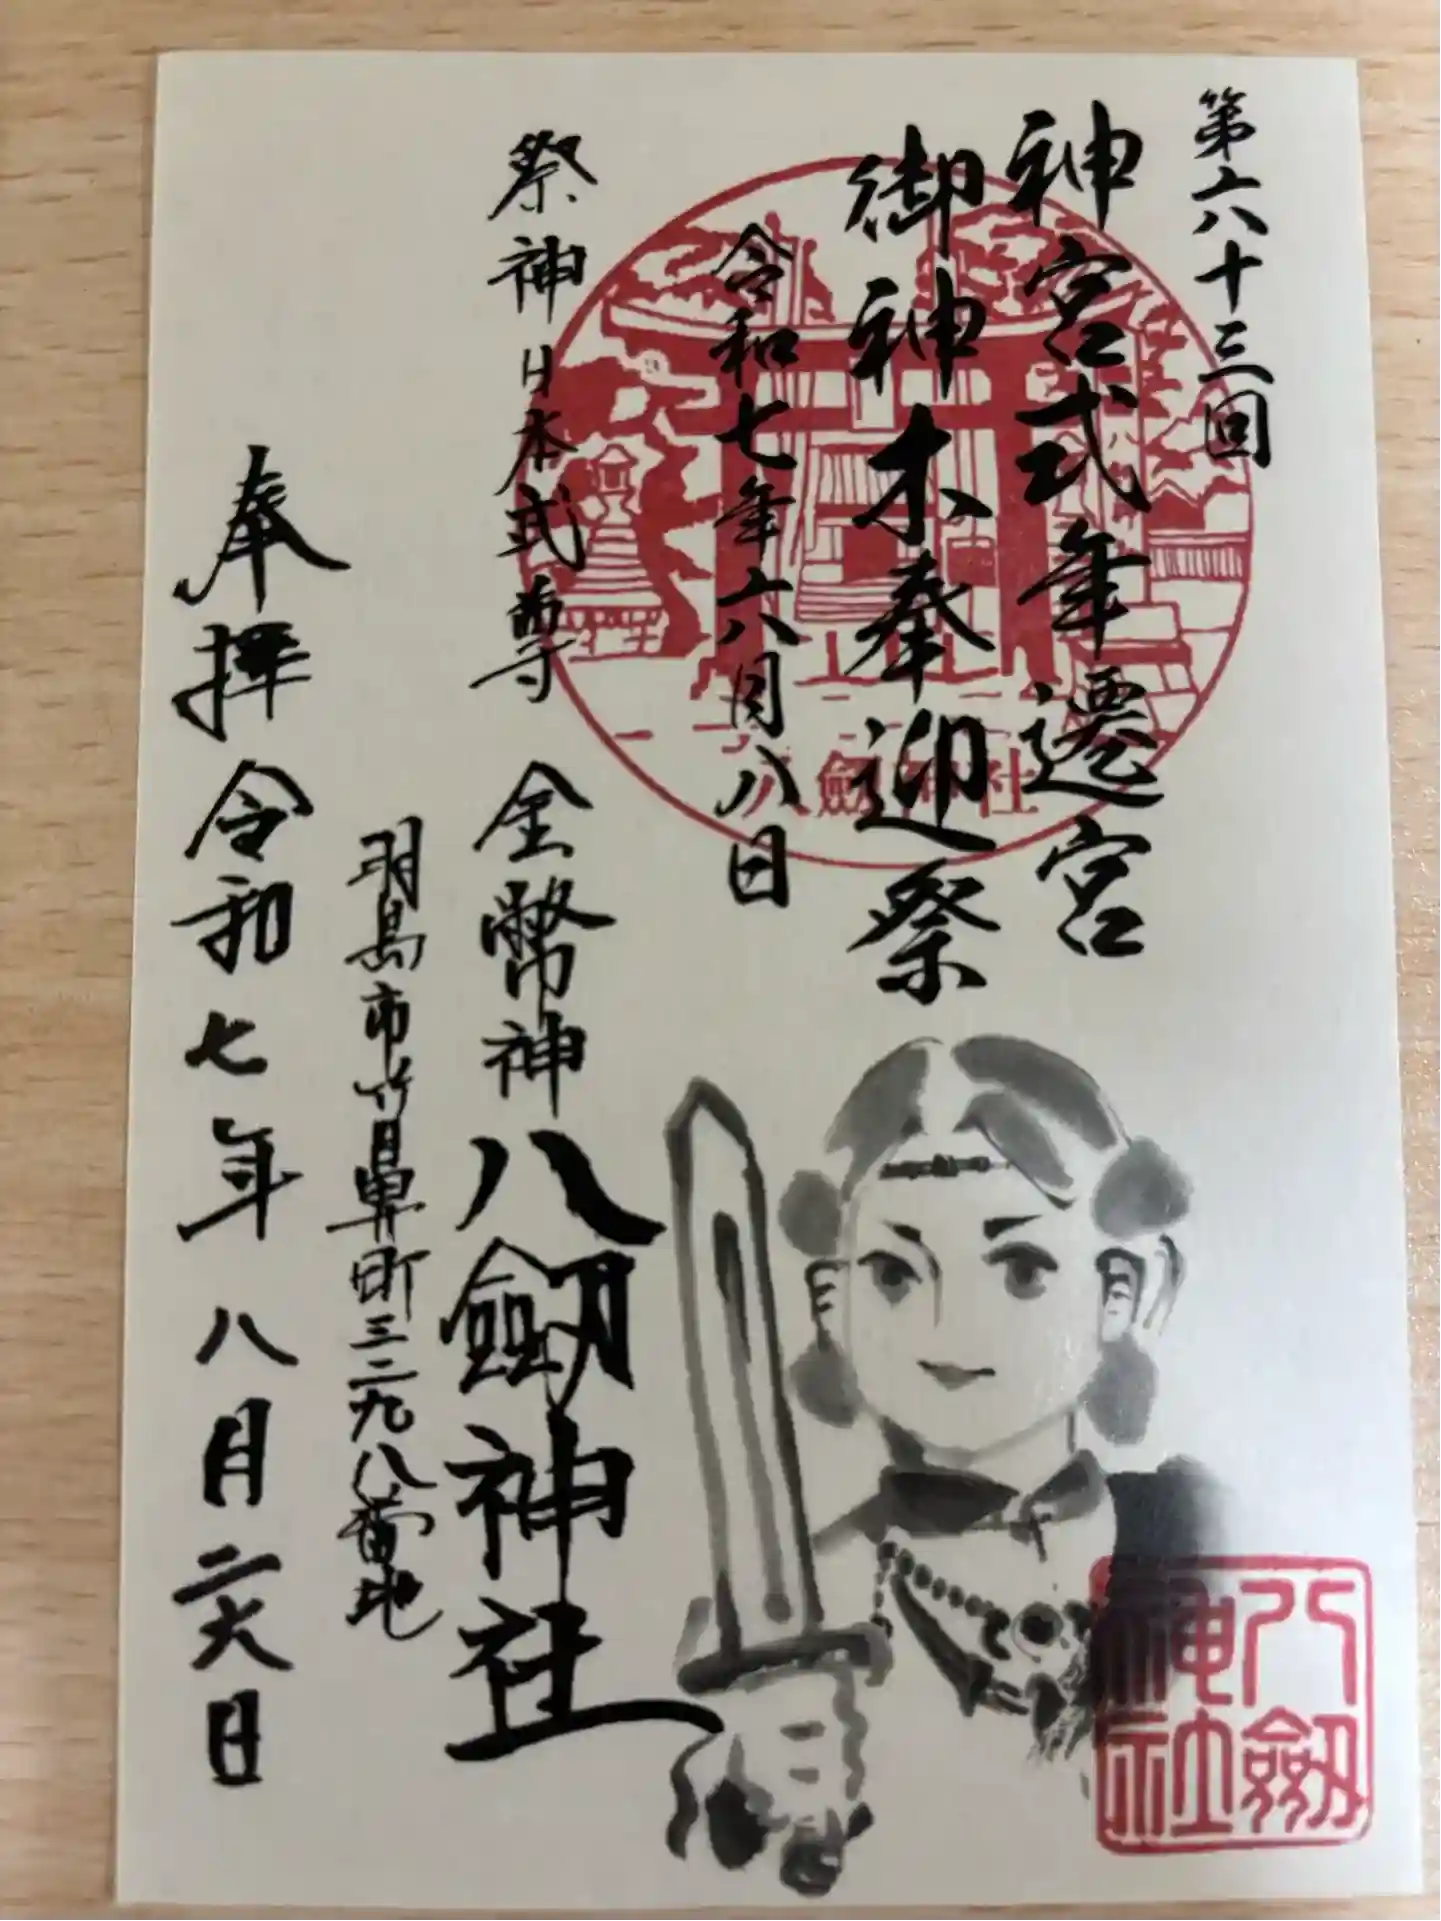 第六十三回
神宮式年遷宮
御神木奉迎祭
令和七年六月八日
祭神日本武尊
金幣神
八剱神社
羽島市竹鼻町三二九八番地
奉拝令和七年八月二六日
八剱神社
八剱
神社